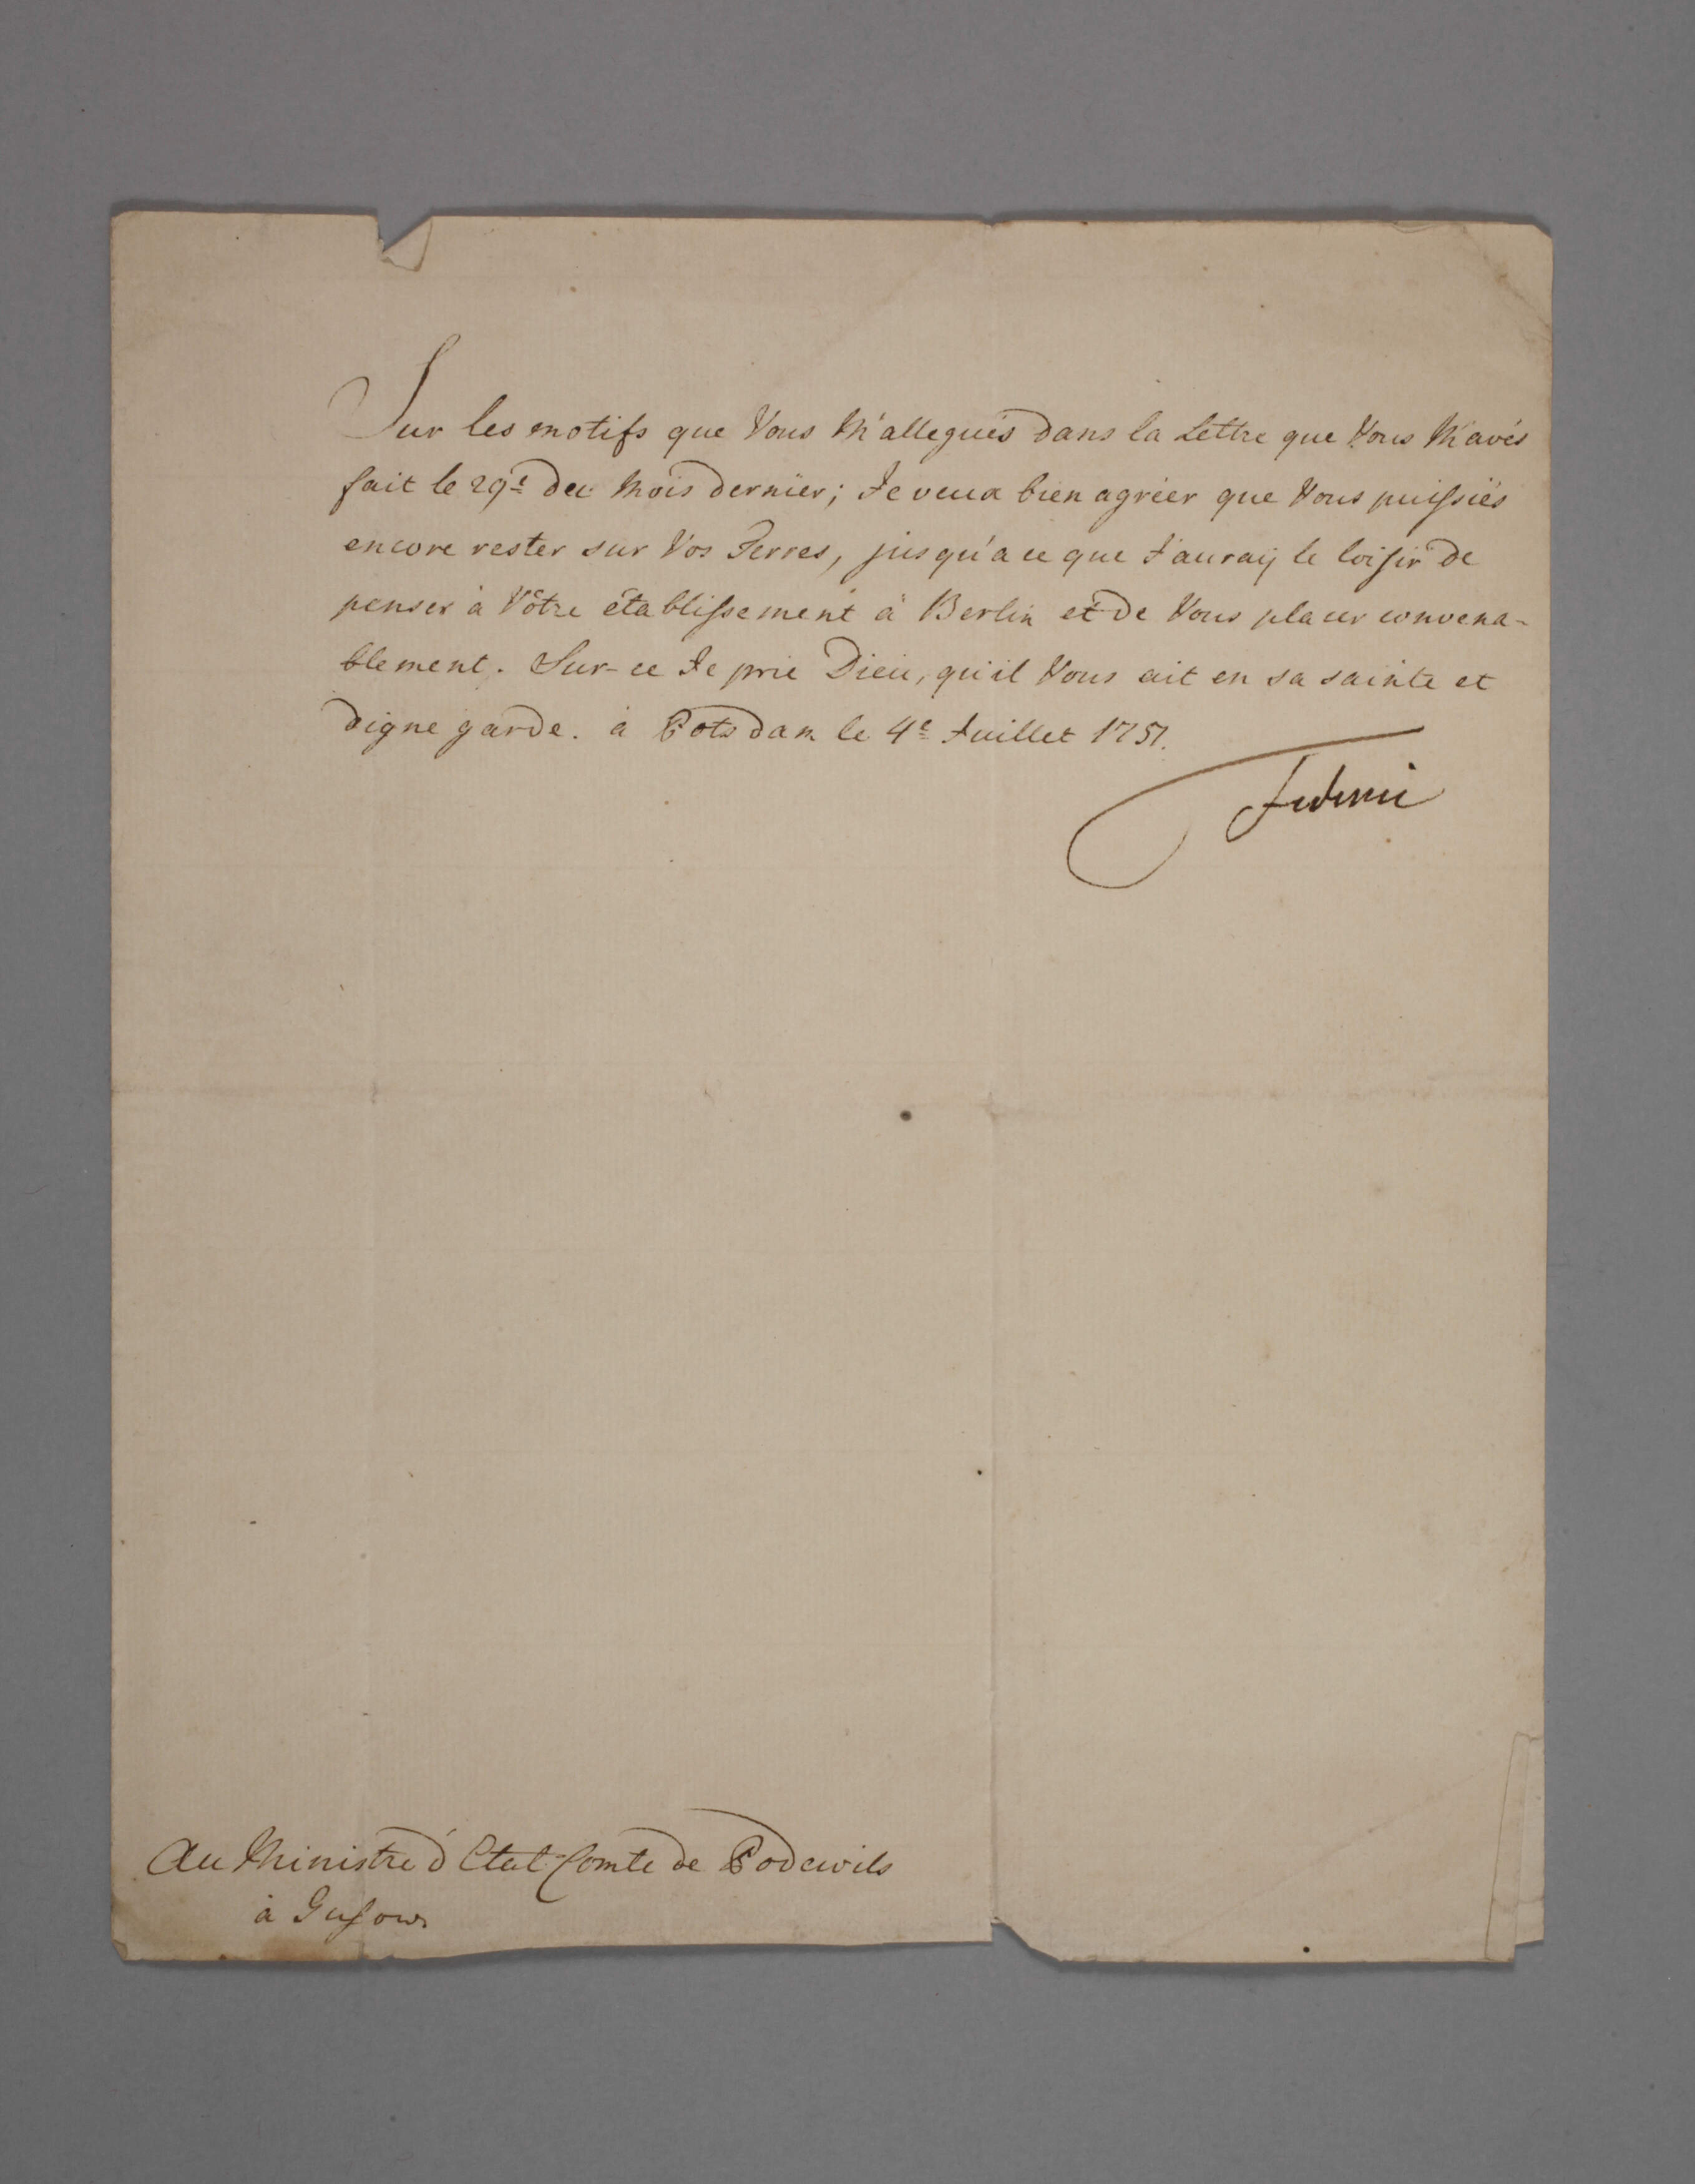 Sur les motifs que Vous M'allegués dans la Lettre que Vous M'avés
fait le 29e du Mois dernier; Je veux bien agréer que Vous puissiés
encore rester sur Vos Terres, jusqu'a ce que J'auraÿ le loisir de
penser à Vôtre établissement à Berlin et de Vous placer convena-
blement. Sur-ce Je prie Dieu, qu'il Vous ait en sa sainte et
digne garde. à Potsdam le 4e Juillet 1751.
Federic
Au Ministre d'Etat Comte de Podewils
à Gusow.